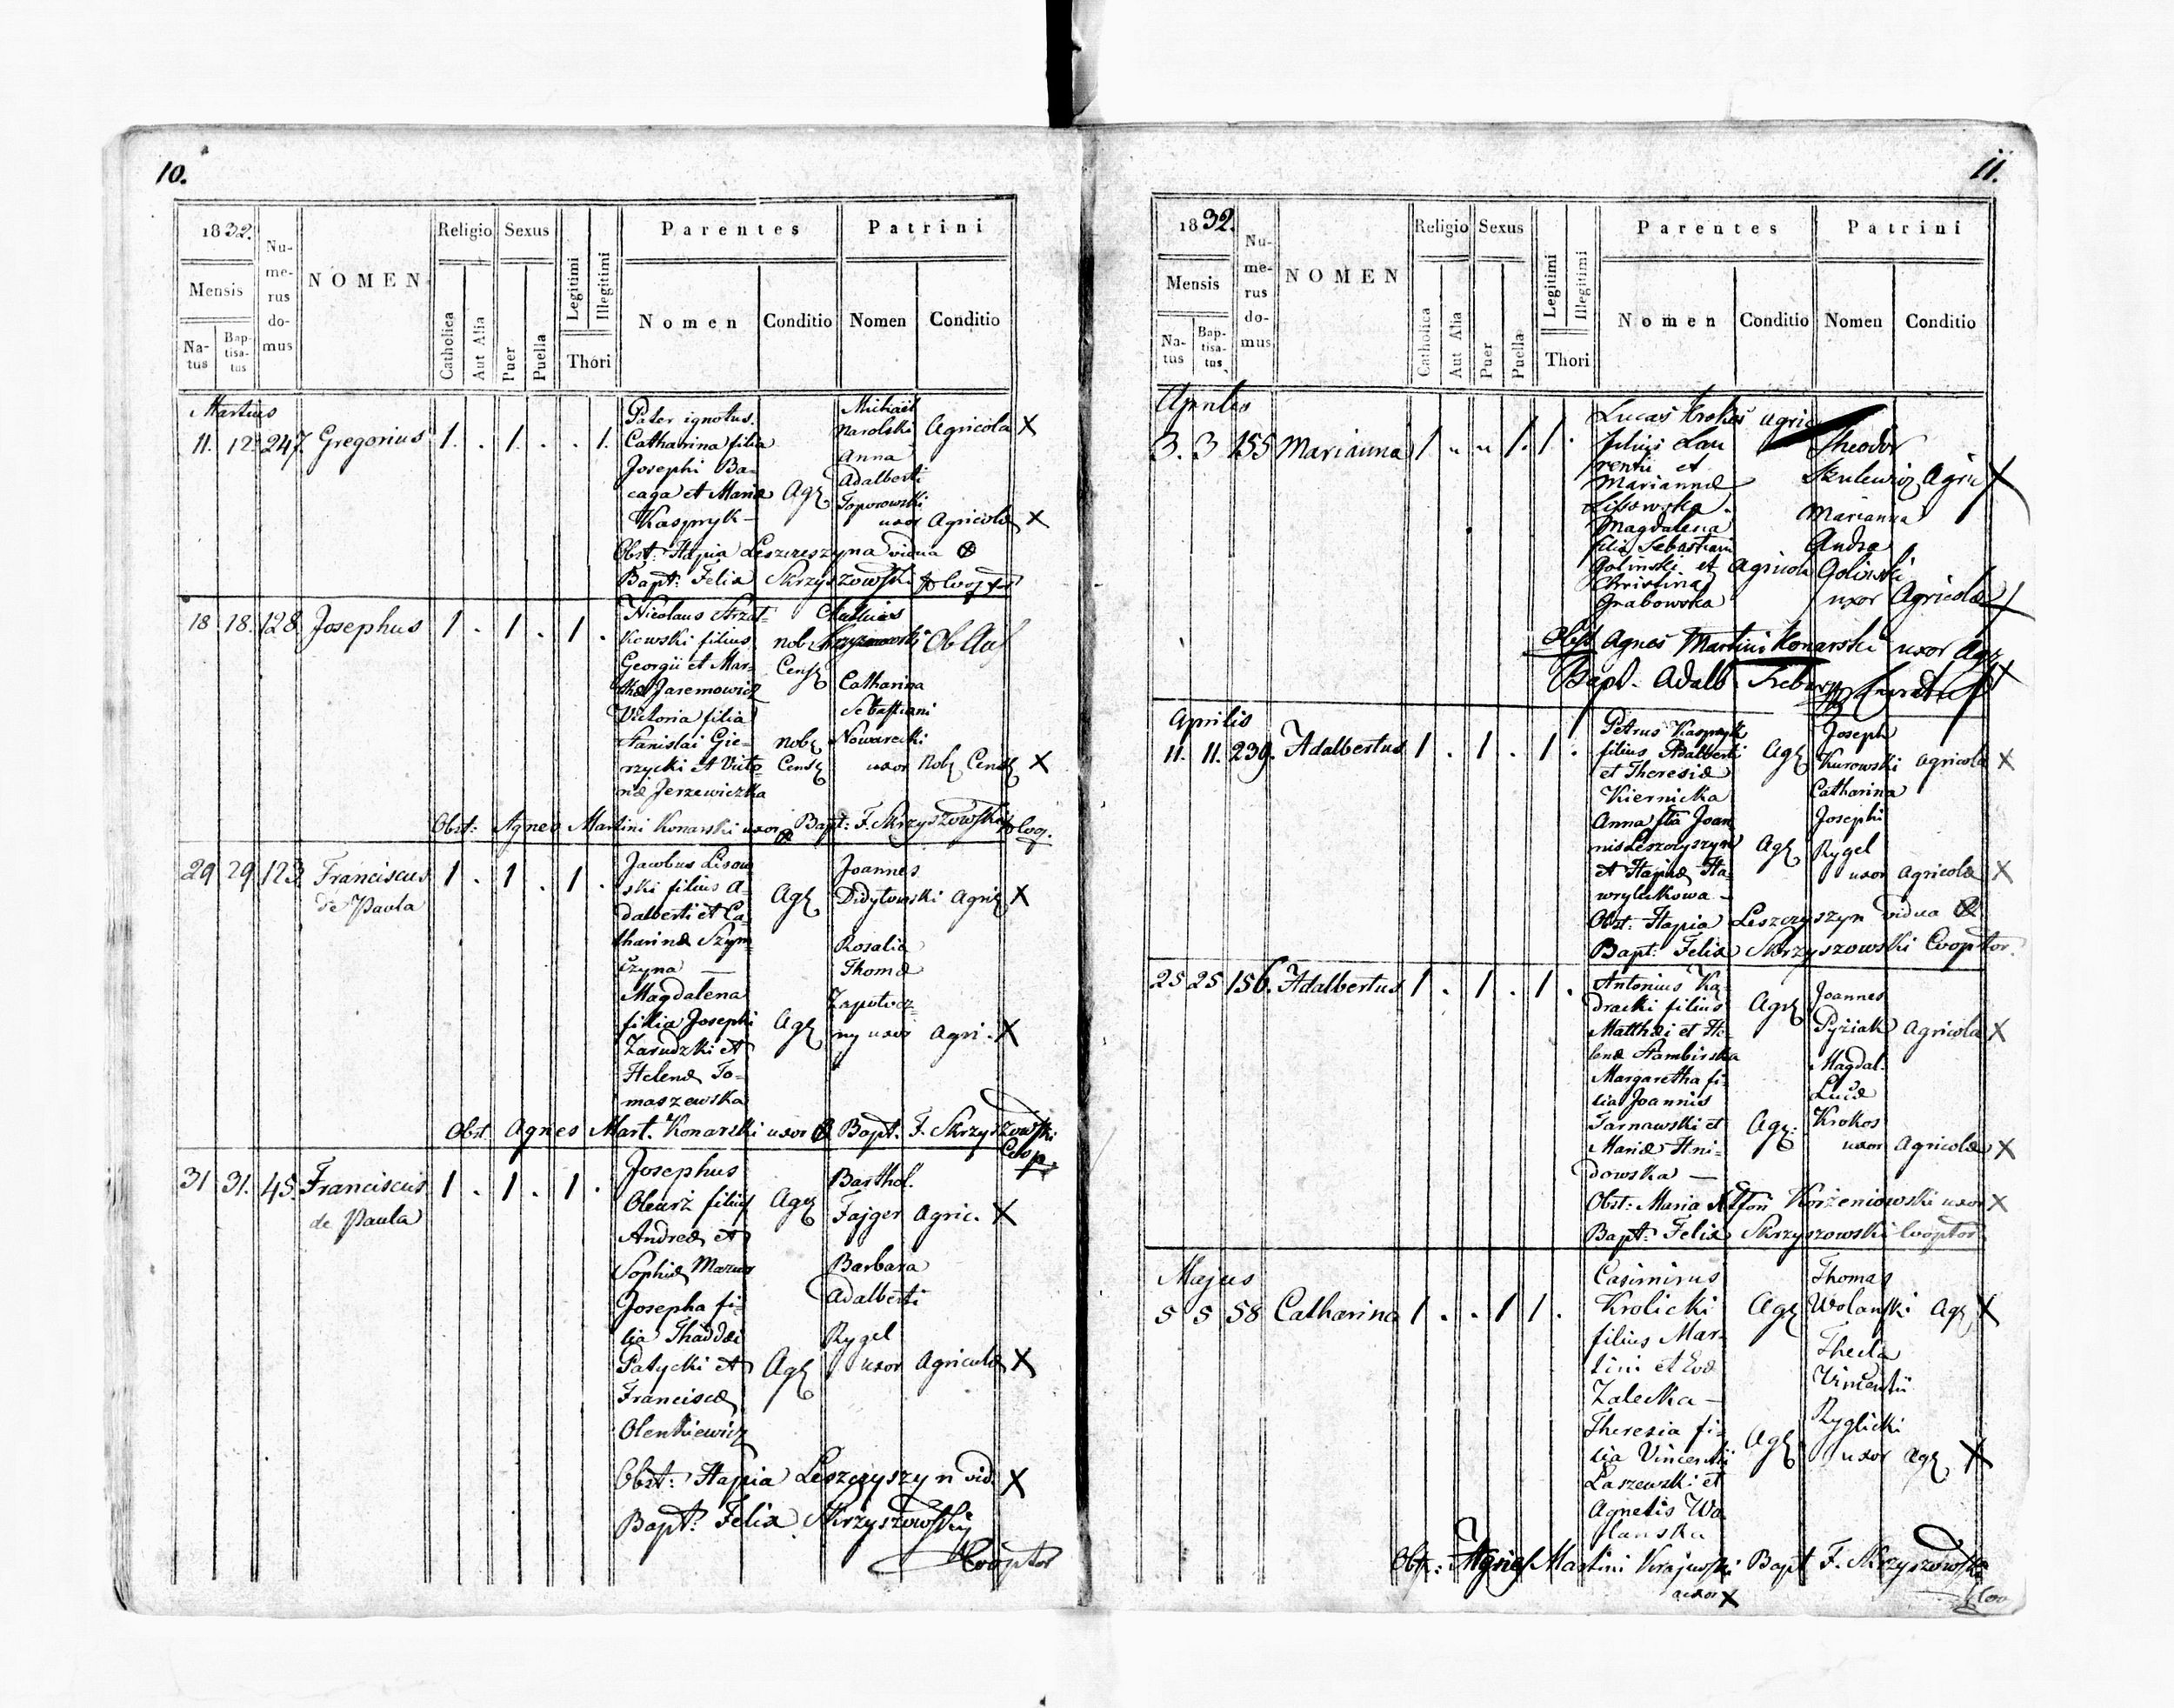 10.
1832.
Mensis
Natus
Baptisatus
Numerus domus
NOMEN
Religio
Catholica
Aut Alia
Sexus
Puer
Puella
Legitimi
Illegitimi
Thori
Parentes
Nomen
Conditio
Patrini
Nomen
Conditio
Martius
11. 12. 247. Gregorius 1. . 1. . . 1.
Pater ignotus.
Catharina filia
Josephi Ba-
caga et Mariæ
Kaspryk -
Michaël
Narolski Agricola X
Anna
Adalberti
Toporowski
uxor Agricolæ X
Obst: Hapia Leszczeszyna vidua
Bapt: Felix Skrzyszowski
18 18. 128. Josephus 1 . 1 . 1 .
Nicolaus Strzał-
kowski filius
Georgii et Mar-
thæ Jaremowicz
Victoria filia
Stanislai Gie-
rzycki et Victo-
riæ Jerzewiczka
Catharina
Sebastiani
Nowarecki
uxor X
Obst: Agnes Martini Konarski uxor Bapt: F. Skrzyszowski
29 29 123 Franciscus 1 . 1 . 1 .
de Paula
Jacobus Lisow
ski filius A-
dalberti et Ca-
tharinæ Szym-
czyna —
Magdalena
filia Josephi
Zarudzki et
Helenæ To-
maszewska
Joannes
Didytowski X
Rosalia
Thomæ
uxor Agri. X
Obst. Agnes Mart. Konarski uxor Bapt. F. Skrzyszowski
Coop.
31 31. 45. Franciscus 1 . 1 . 1 .
de Paula
Josephus
Olearz filius
Andreæ et
Sophiæ Mazur
Josepha fi-
lia Thaddæi
Patycki et
Franciscæ
Olenkiewicz
Barthol.
Fajger Agric. X
Barbara
Adalberti
Rygel
uxor Agricolæ X
Obst: Hapia Leszczyszyn vid. X
Bapt: Felix Skrzyszowski
Cooptor
11.
1832.
Mensis
Natus
Baptisatus
Numerus domus
NOMEN
Religio
Catholica
Aut Alia
Sexus
Puer
Puella
Legitimi
Illegitimi
Thori
Parentes
Nomen
Conditio
Patrini
Nomen
Conditio
Aprilis
3. 3 155 Marianna 1 " " 1. 1 .
Lucas Krokos agric
filius Lau
rentii et
Mariannæ
Lisowska.
Magdalena
filia Sebastiani
Golinski et Agricola
Christina
Grabowska
Theodor
Skulewicz Agric X
Marianna
Golinski
uxor Agricolæ X
Obst Agnes Martini Konarski uxor
Bapt. Adalb.
Aprilis
11. 11. 239. Adalbertus 1 . 1 . 1 .
Petrus Kaspryk
filius Adalberti
et Theresiæ
Kiernicka
Anna fia Joan
nis Leszczyszyn
et Hapiæ Ha-
wryluikowa -
Joseph
Kurowski agricola X
Catharina
Josephi
Rygel
uxor agricolæ X
Obst: Hapia Leszczyszyn vidua
Bapt: Felix Skrzyszowski Cooptor.
25 25 156. Adalbertus 1 . 1 . 1 .
Antonius Ka
dracki filius
Matthæi et He-
lenæ Stambirska
Margaretha fi-
lia Joannis
Tarnawski et
Mariæ Hni-
dowska —
Joannes
Pyziak Agricola X
Magdal.
Lucæ
Krokos
uxor Agricolæ X
Obst: Maria Korzeniowski uxor X
Bapt: Felix Skrzyszowski Cooptor
Majus
5 5 58 Catharina 1 . . 1 1 .
Casimirus
Krolicki
filius Mar-
tini et Evæ
Zalecka —
Theresia fi-
lia Vincentii
Laszewski et
Agnetis Wo
lanska
Thomas
Wolanski X
Thecla
Vincentii
Ryglicki
uxor X
Obst: Agnes Martini Krajewski Bapt F. Skrzyszowski
uxor X